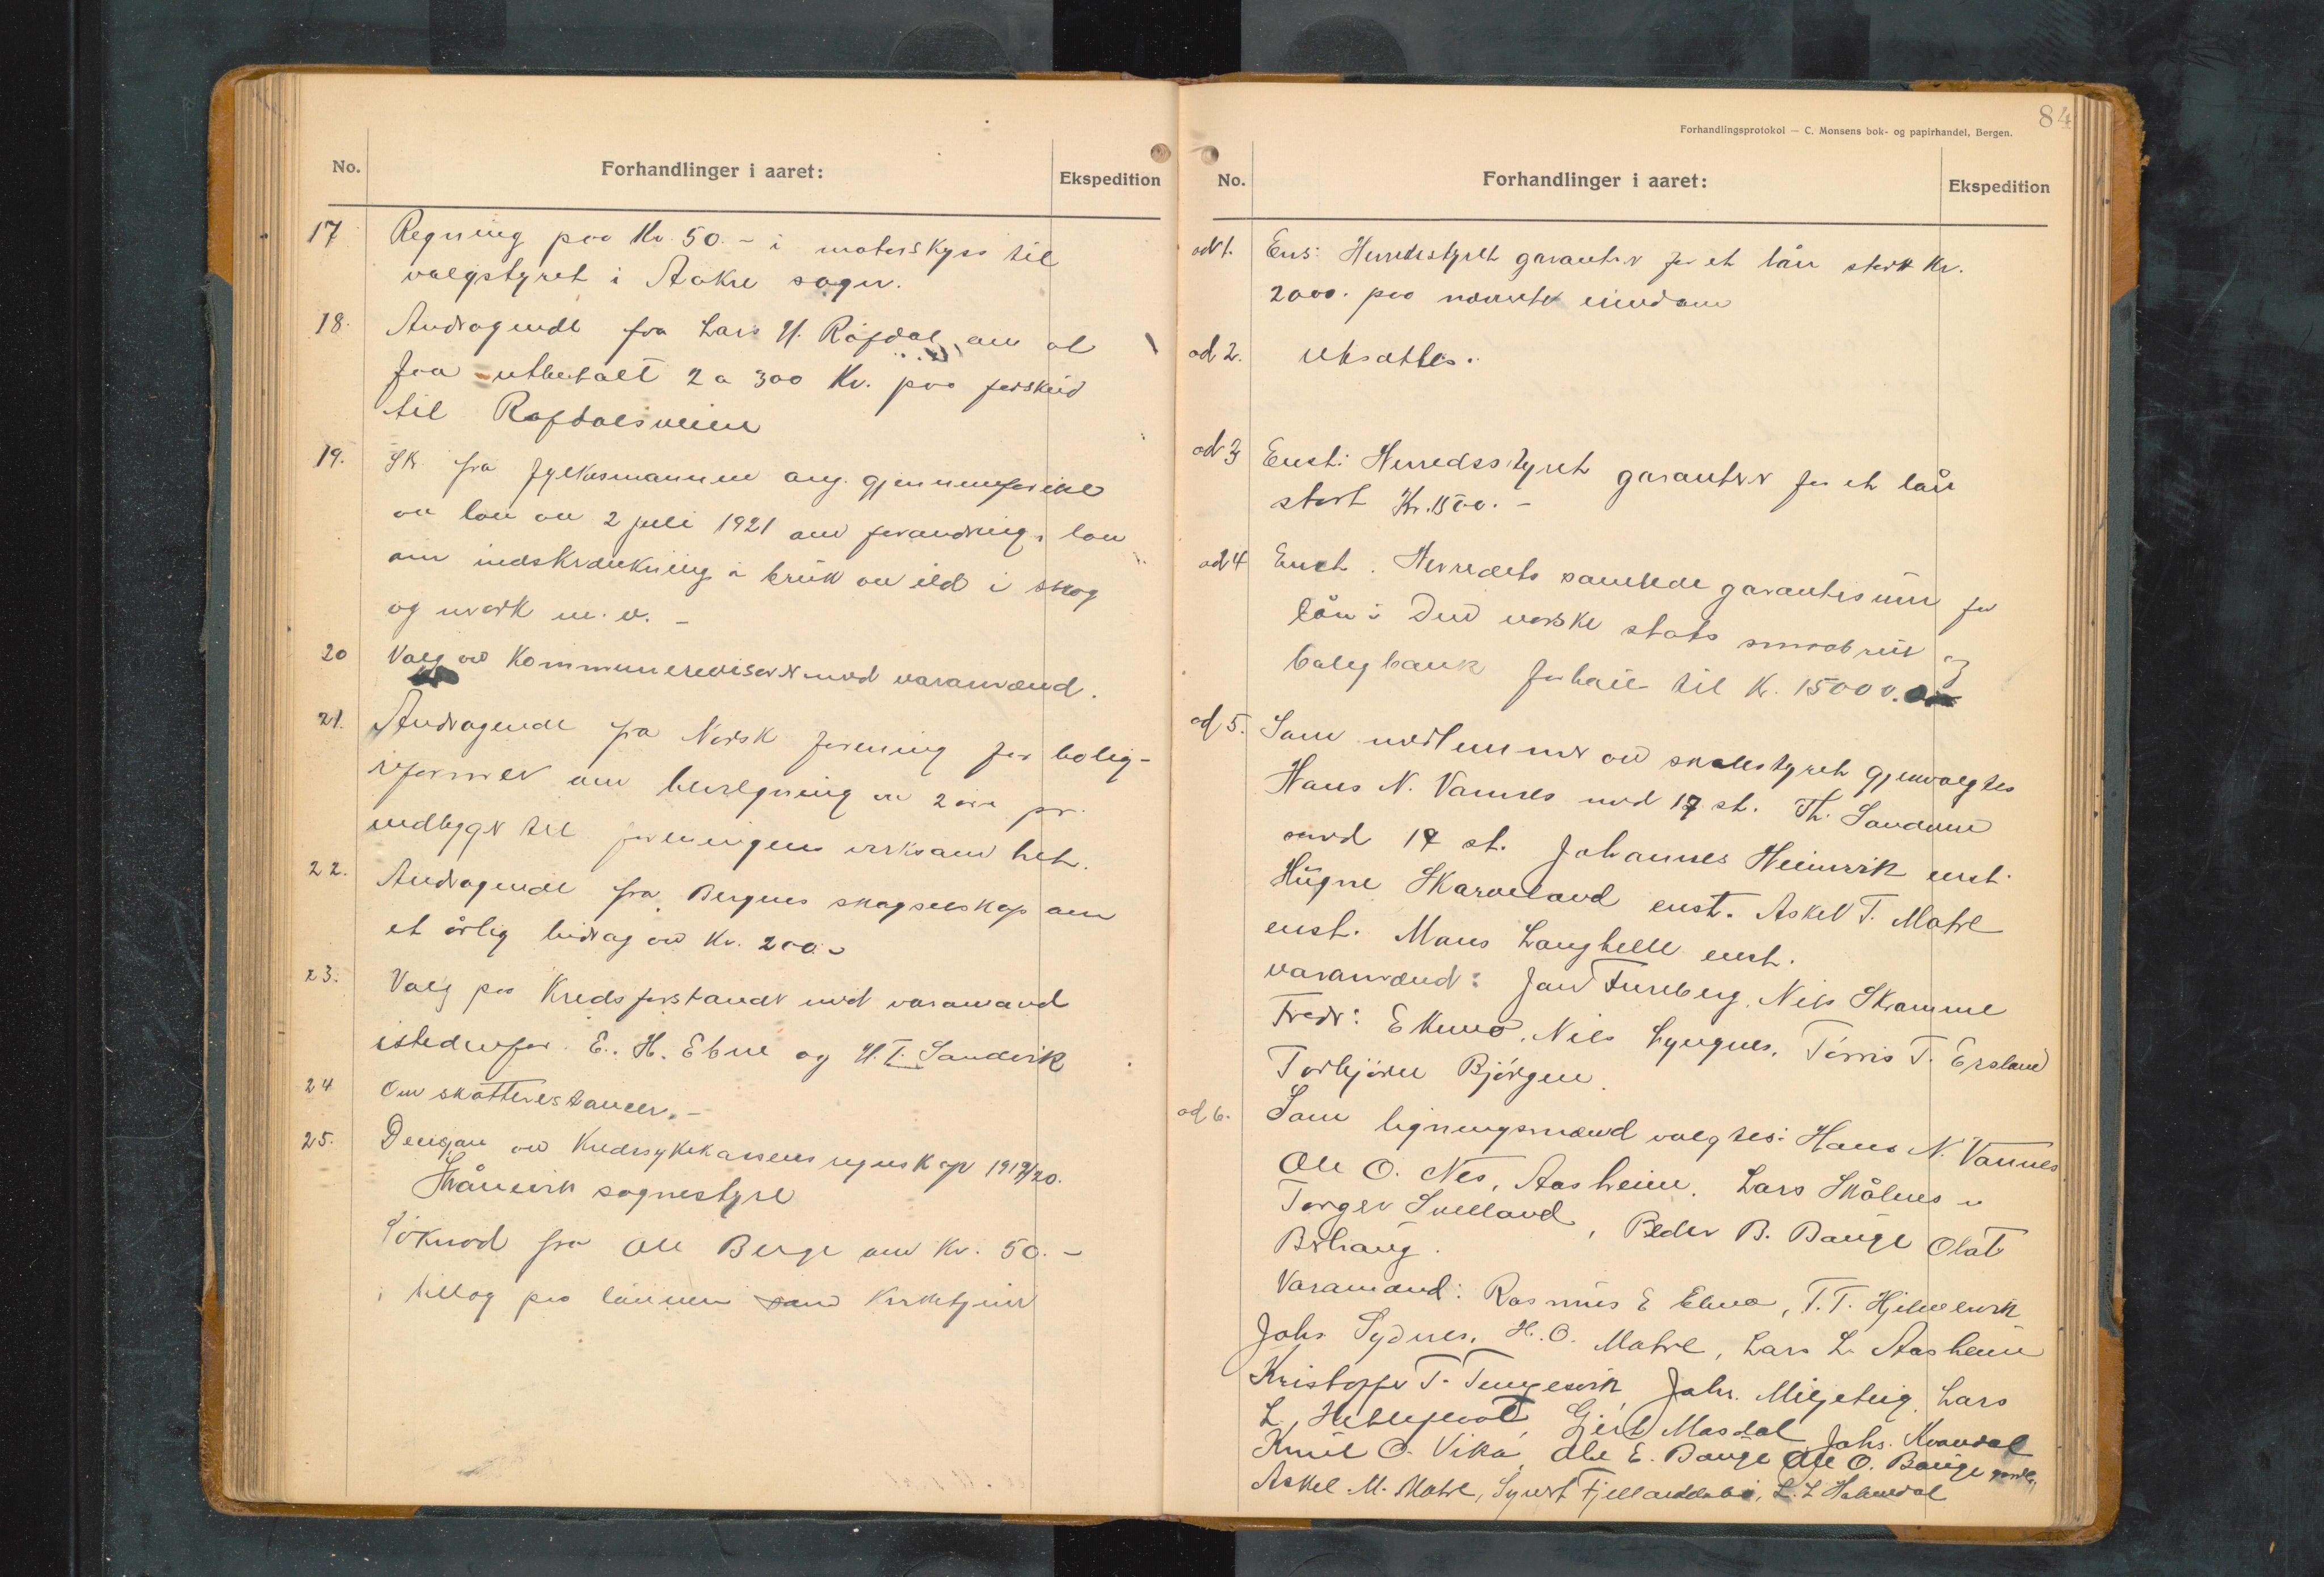 No.
Forhandlinger i aaret:
Ekspedition
17
Regning paa Kr. 50.- i motorskyss til
valgstyret i Aakre sogn.
18.
Andragende fra Lars H. Råfdal om at
faa utbetalt 2 a 300 Kr. paa forskud
til Rafdalsveien
19.
Sk. fra fylkesmannen ang. gjennemførelse
av lov av 2 juli 1921 om forandring i lov
om indskrænkning i bruk av ild i skog
og mark m. v. -
20
Valg av Kommunerevisor med varamænd.
21.
Andragende fra Norsk forening for bolig-
reformer om bevilgning av 2 øre pr.
indbygger til foreningens virksomhet.
22.
Andragende fra Bergens skogselskap om
et årlig bidrag av Kr. 200.-
23.
Valg paa Kredsforstander med varamand
istedenfor E. H. Ebne og H. T. Sandvik
24
Om skatterestancer. -
25.
Decisjon av Kredssykekassens regnskap 1919/20.
Skånevik sognestyre
Søknad fra Ole Berge om Kr. 50.-
i tillæg paa lønnen som Kirketjener
84
Forhandlingsprotokol — C. Monsens bok- og papirhandel, Bergen.
No.
Forhandlinger i aaret:
Ekspedition
ad 1.
Ens: Herredstyret garanterer for et lån stort Kr.
2000. paa nævnte eiendom
ad 2.
Utsattes.
ad 3
Enst: Herredsstyret garanterer for et lån
stort Kr. 1500. -
ad 4
Enst. Herredets samlede garantisum for
lån i Den norske stats smaabruk og
boligbank forhøies til K. 15000.
ad 5.
Som medlemmer av skolestyret gjenvalgtes
Hans N. Vannes med 17 st. Th. Sandnes
med 14 st. Johannes Heimvik enst.
Hugne Skarveland enst. Askel T. Matre
enst. Mons Langhelle enst.
varamænd: Jan Fureberg, Nils Skramme
Fredr: Ekmo, Nils Lyngnes, Tørris T. Ersland
Torbjørn Bjørgen.
ad 6.
Som ligningsmænd valgtes: Hans N. Vannes
Ole O. Nes, Aasheim. Lars Skålnes
Torger Svelland, Peder B. Bauge Olav
Børhaug.
Varamænd: Rasmus E Ebne, T. T. Hjelmervik
Johs Sydnes, H. O. Matre, Lars L. Aasheim
Kristoffer T. Tungesvik, Johs. Miljeteig, Lars
L. Hetleflaat, Gjert Mosdal, Johs. Kvandal
Knut O. Vika, Ole E. Bauge Ole O. Bauge
Askel M. Matre, Syvert Fjellanddabø, L. L Halmedal